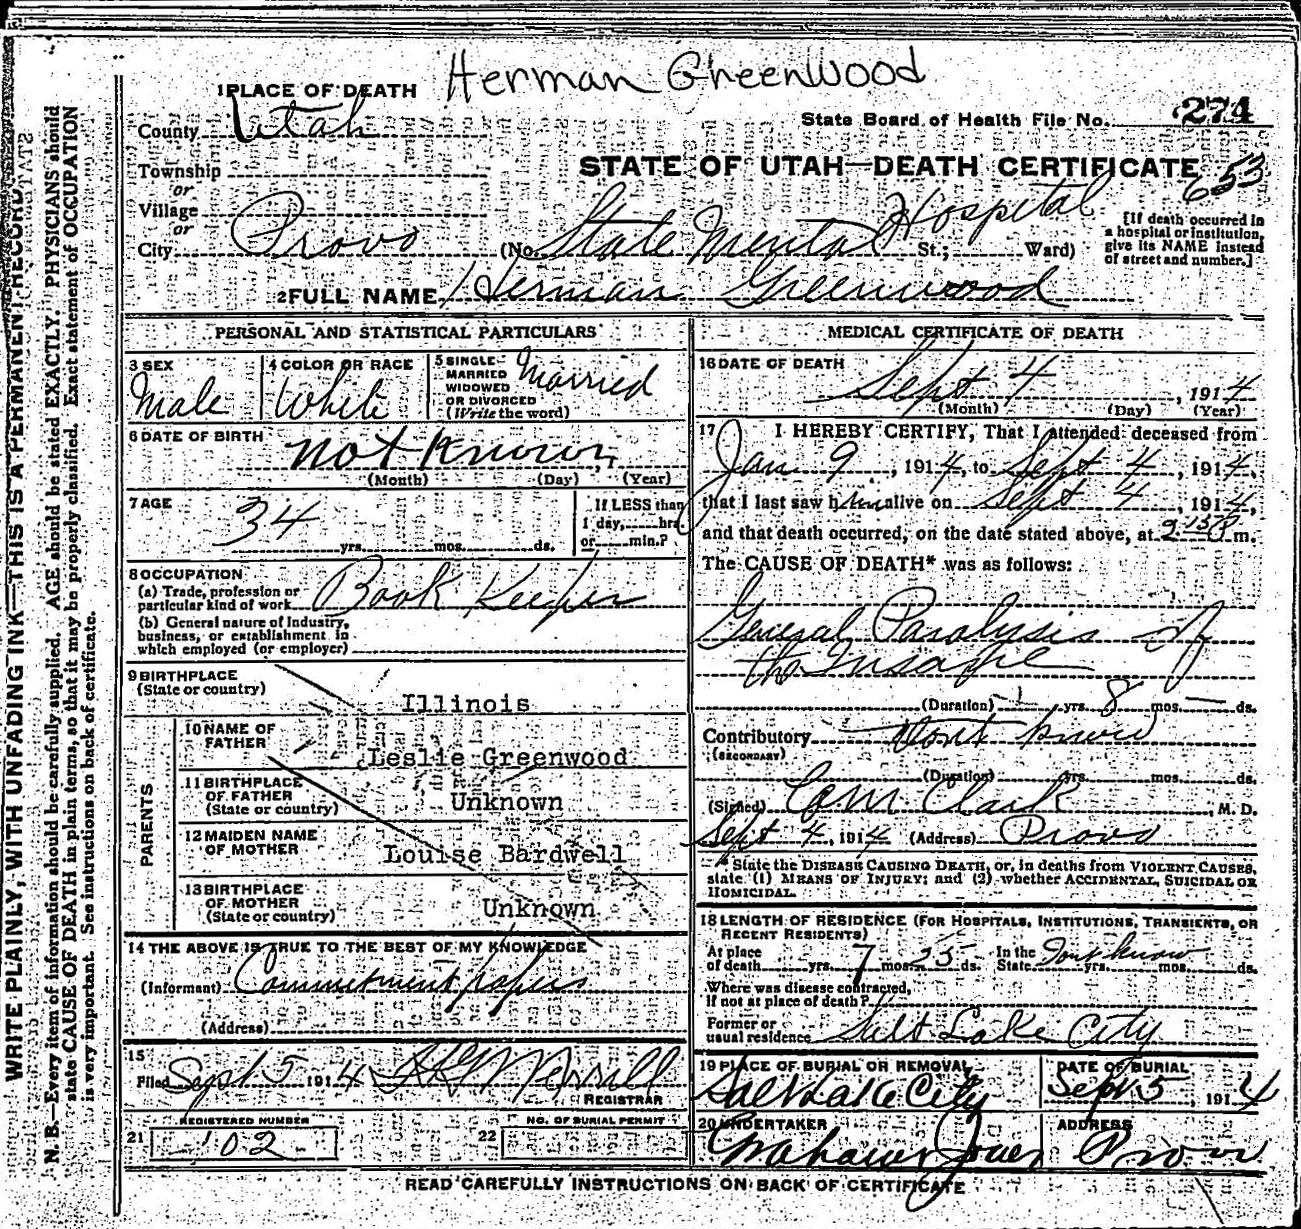 Herman Greenwood
1 PLACE OF DEATH
County Utah
State Board of Health File No. 274
Township
or
STATE OF UTAH—DEATH CERTIFICATE 653
Village
or
City Provo (No. State Mental Hospital St.; Ward)
[If death occurred in
a hospital or institution,
give its NAME instead
of street and number.]
2 FULL NAME Herman Greenwood
PERSONAL AND STATISTICAL PARTICULARS
3 SEX
Male
4 COLOR OR RACE
White
5 SINGLE
MARRIED
WIDOWED
OR DIVORCED
(Write the word)
Married
6 DATE OF BIRTH
not known
(Month) (Day) (Year)
7 AGE
34
yrs. mos. ds.
If LESS than
1 day, hrs.
or min.?
8 OCCUPATION
(a) Trade, profession or
particular kind of work Book Keeper
(b) General nature of industry,
business, or establishment in
which employed (or employer)
9 BIRTHPLACE
(State or country)
Illinois
PARENTS
10 NAME OF
FATHER
Leslie Greenwood
11 BIRTHPLACE
OF FATHER
(State or country)
Unknown
12 MAIDEN NAME
OF MOTHER
Louise Bardwell
13 BIRTHPLACE
OF MOTHER
(State or country)
Unknown
14 THE ABOVE IS TRUE TO THE BEST OF MY KNOWLEDGE
(Informant) Commitment papers
(Address)
15
Filed Sept 5 1914 Merrill
REGISTRAR
REGISTERED NUMBER
21 102
NO. OF BURIAL PERMIT
22
MEDICAL CERTIFICATE OF DEATH
16 DATE OF DEATH
Sept 4, 1914
(Month) (Day) (Year)
17 I HEREBY CERTIFY, That I attended deceased from
Jan 9, 1914, to Sept 4, 1914,
that I last saw him alive on Sept 4, 1914,
and that death occurred, on the date stated above, at 2:15 P m.
The CAUSE OF DEATH* was as follows:
General Paralysis of
the Insane
(Duration) 1 yrs. 8 mos. — ds.
Contributory Dont know
(SECONDARY)
(Duration) yrs. mos. ds.
(Signed) Clark, M. D.
Sept 4, 1914 (Address) Provo
* State the DISEASE CAUSING DEATH, or, in deaths from VIOLENT CAUSES,
state (1) MEANS OF INJURY; and (2) whether ACCIDENTAL, SUICIDAL OR
HOMICIDAL.
18 LENGTH OF RESIDENCE (FOR HOSPITALS, INSTITUTIONS, TRANSIENTS, OR
RECENT RESIDENTS)
At place
of death yrs. 7 mos. 25 ds. In the
State Dont know yrs. mos. ds.
Where was disease contracted,
if not at place of death?
Former or
usual residence Salt Lake City
19 PLACE OF BURIAL OR REMOVAL
Salt Lake City
DATE OF BURIAL
Sept 5, 1914
20 UNDERTAKER
Graham Jones
ADDRESS
Provo
READ CAREFULLY INSTRUCTIONS ON BACK OF CERTIFICATE
WRITE PLAINLY, WITH UNFADING INK—THIS IS A PERMANENT RECORD
N. B.—Every item of information should be carefully supplied. AGE should be stated EXACTLY. PHYSICIANS should
state CAUSE OF DEATH in plain terms, so that it may be properly classified. Exact statement of OCCUPATION
is very important. See instructions on back of certificate.